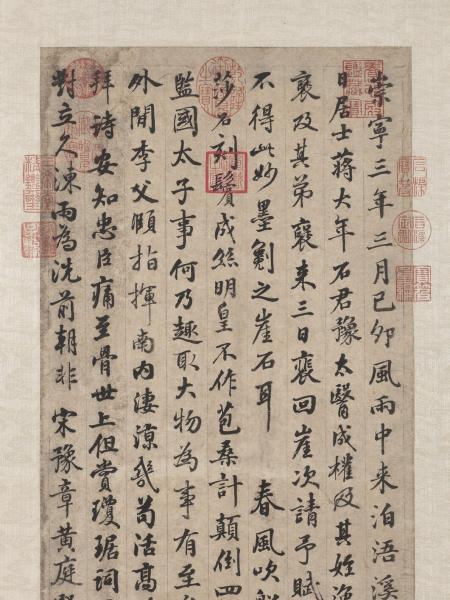 崇寧三年三月己卯風雨中来泊浯溪
日居士蔣大年石君豫太醫成權及其姪逸
襃及其弟褎来三日裵回崖次請予賦
不得此妙墨劖之崖石耳 春風吹船
莎石刻鬢成絲明皇不作苞桑計顛倒四
監國太子事何乃趣取大物為事有至
外間李父頤指揮南内淒涼幾苟活高
拜詩安知忠臣痛至骨世上但賞瓊琚詞
對立久涷雨為洗前朝非 宋豫章黄庭堅